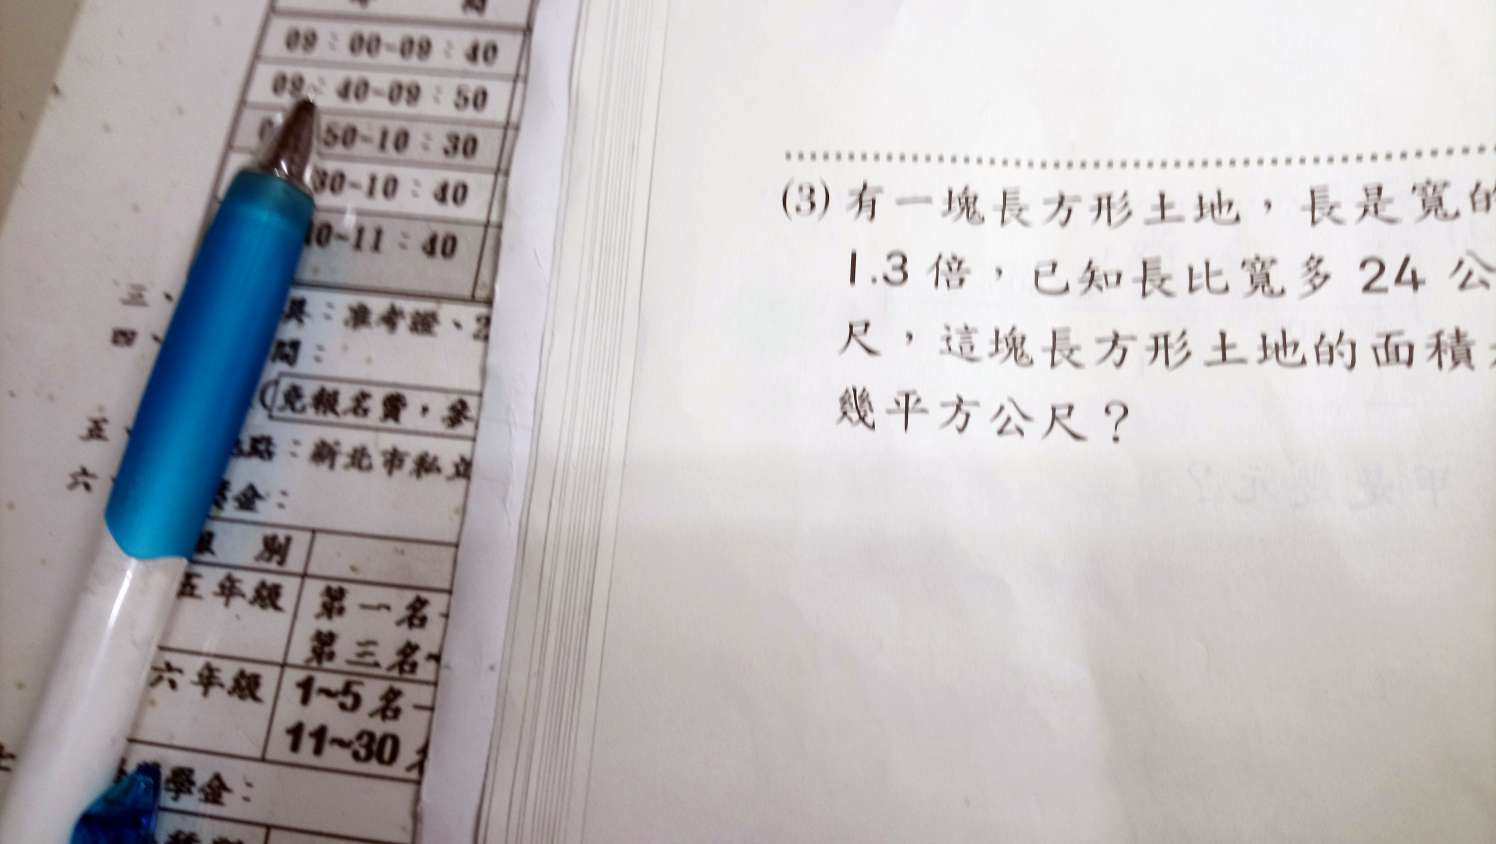 09：00~09：40
09：40~09：50
50~10：30
30~10：40
40~11：40
三、
四、
：准考證、2
間：
(免報名費，參
五、
點：新北市私立
六
金：
別
五年級
第一名
第三名~
六年級
1~5名
11~30
學金：
(3)有一塊長方形土地，長是寬的
1.3倍，已知長比寬多24公
尺，這塊長方形土地的面積
幾平方公尺？